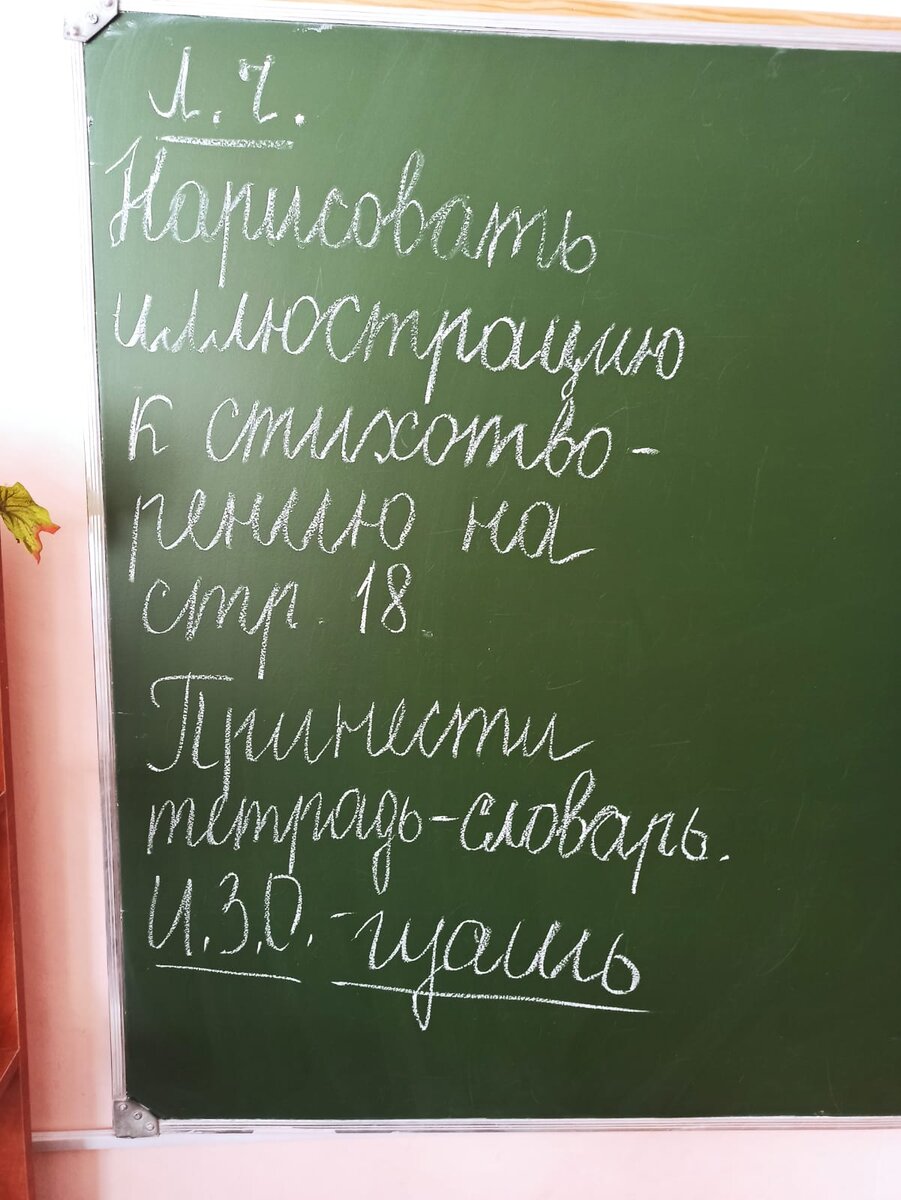 Л.Ч.
Нарисовать
иллюстрацию
к стихотво-
рению на
стр. 18.
Принести
тетрадь-словарь.
И.З.О.-гуашь